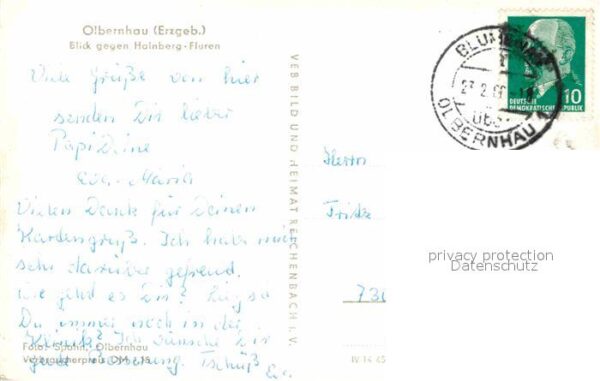 Olbernhau (Erzgeb.)
Blick gegen Hainberg-Fluren
Viele Grüße von hier
senden Dir lieber
Papi Deine
Eva-Maria
Vielen Dank für Deinen
Kartengruß. Ich habe mich
sehr darüber gefreut.
Wie geht es Dir?
Du immer noch in der
Klinik? Ich wünsche Dir
gute Besserung. Tschüß
Foto: Spahn, Olbernhau
Verbraucherpreis DM
VEB BILD UND HEIMAT REICHENBACH i. V.
BLUMENAU
OLBERNHAU
DEUTSCHE
DEMOKRATISCHE REPUBLIK
10
Herrn
Fritz
privacy protection
Datenschutz